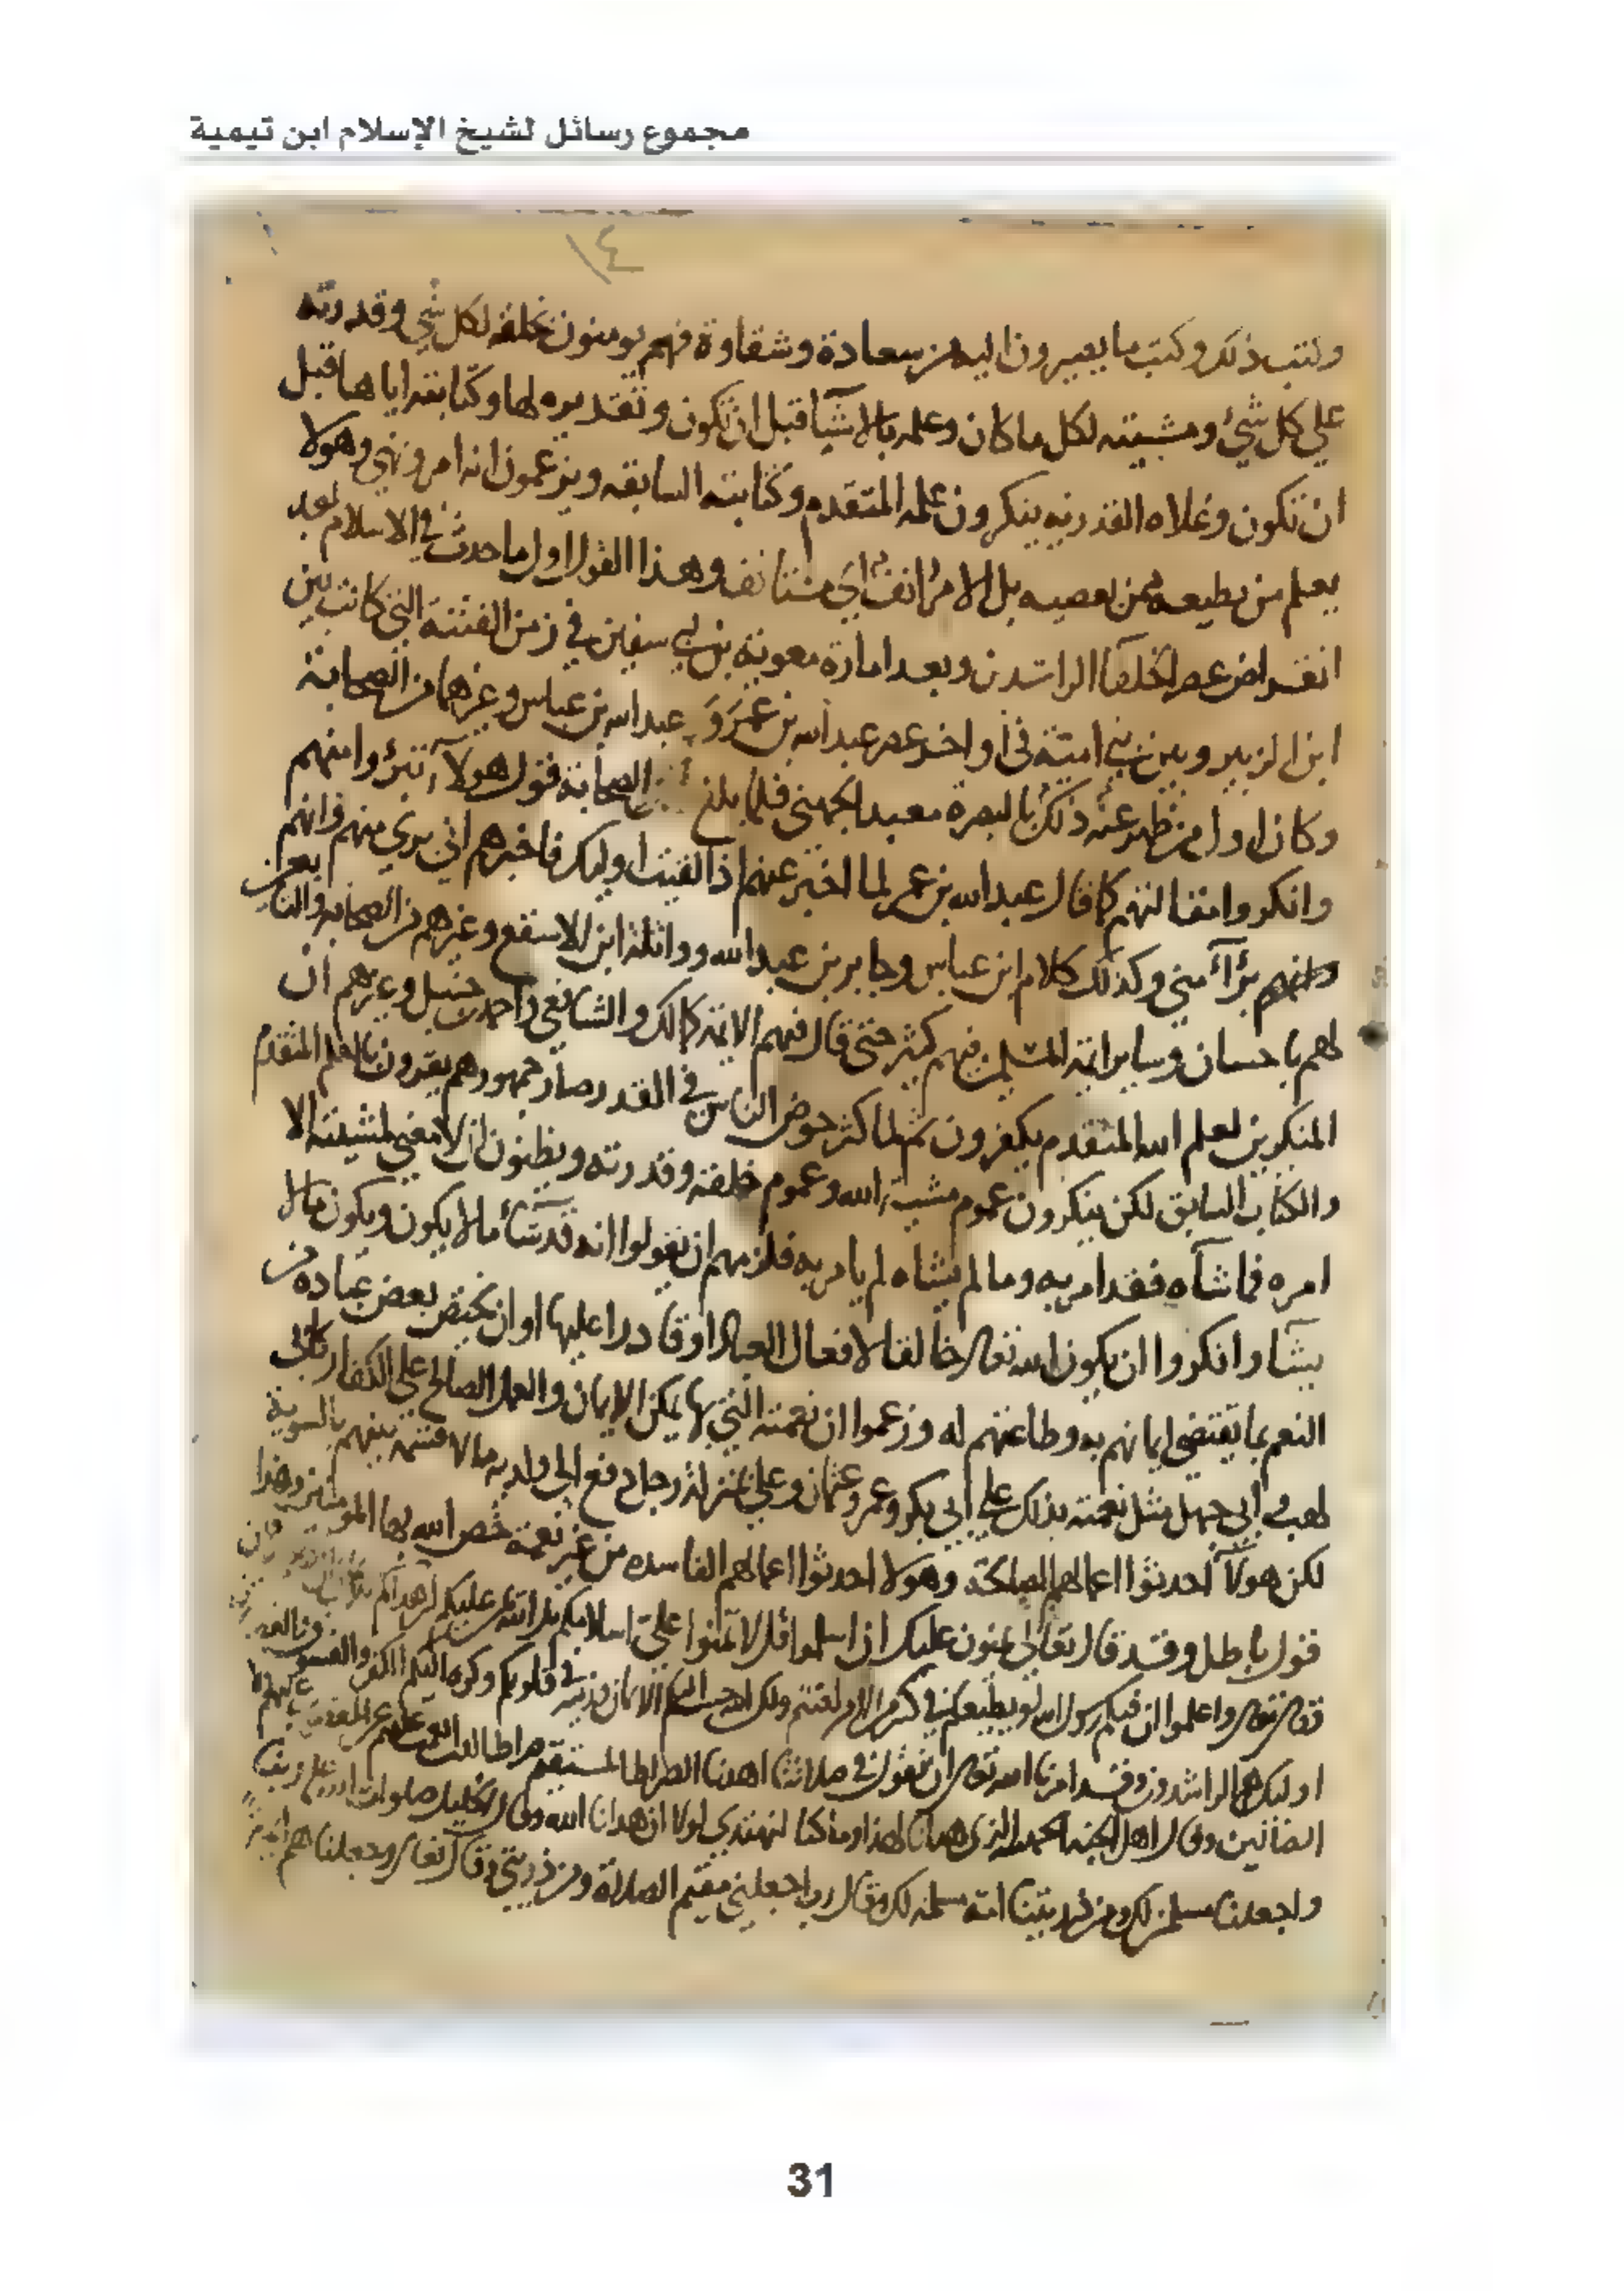 مجموع رسائل لشيخ الإسلام ابن تيمية
١٤
وكتب ذلك وكتب ما يصيرون اليه من سعادة وشقاوة فهم يومنون بخلقه لكل شي وقدرته
علي كل شيئ ومشيته لكل ما كان وعلمه بالاشيآ قبل ان تكون وتقديره لها وكتابته اياها قبل
ان تكون وغلاه القدريه ينكرون علمه المتقدم وكتابته السابقه ويزعمون انه امر ونهي وهولا
يعلم من يطيعه ممن يعصيه بل الامر انف اي مستانف وهذا القول اول ما حدث في الاسلام بعد
انقراض عصر الخلفآ الراشدين وبعد امارة معوية بن ابي سفين في زمن الفتنة التي كانت بين
ابن الزبير وبين بني امية في اواخر عصر عبد الله بن عمر و عبد الله بن عباس وغيرهما من الصحابة
وكان اول من ظهر عنه ذلك بالبصرة معبد الجهني فلما بلغ الصحابة قول هولآ تبرؤا منهم
وانكروا مقالتهم كما قال عبد الله بن عمر لما اخبر عنهم اذا لقيت اوليك فاخبرهم اني بري منهم وانهم
برآآ مني وكذلك كلام ابن عباس وجابر بن عبد الله وواثلة ابن الاسقع وغيرهم من الصحابه والتابعين
لهم باحسان وساير ايمة المسلمين فيهم كثير حتى قال فيهم الايمة كمالك والشافعي واحمد بن حنبل وغيرهم ان
المنكرين لعلم الله المتقدم يكفرون ثم لما كثر خوض الناس في القدر صار جمهورهم يقرون بالعلم المتقدم
والكتاب السابق لكن ينكرون عموم مشية الله وعموم خلقه وقدرته ويظنون انه لا معنى لمشيته الا
امره فما شآه فقد امر به وما لم يشاه لم يامر به فلزمهم ان يقولوا انه قد يشآ ما لا يكون ويكون ما لا
يشآ وانكروا ان يكون الله تعالى خالقا لافعال العباد او قادرا عليها او ان يختص بعض عباده من
النعم بما يقتضي ايمانهم به وطاعتهم له وزعموا ان نعمته التي بها يمكن الايمان والعمل الصالح على الكفار كابي
لهب وابي جهل مثل نعمته بذلك علي ابي بكر وعمر وعثمان وعلي بمنزلة رجل دفع الي ولديه مالا قسمه بينهم بالسوية
لكن هولآ احدثوا اعمالهم الصالحة وهولا احدثوا اعمالهم الفاسده من غير نعمة خص الله بها المومنين وهذا
قول باطل وقد قال تعالى يمنون عليك ان اسلموا قل لا تمنوا علي اسلامكم بل الله يمن عليكم ان هداكم
تعالى واعلموا ان فيكم رسول الله لو يطيعكم في كثير من الامر لعنتم ولكن الله حبب اليكم الايمان وزينه في قلوبكم وكره اليكم الكفر والفسوق
اوليك هم الراشدون وقد امرنا الله تعالى ان نقول في صلاتنا اهدنا الصراط المستقيم صراط الذين انعمت عليهم غير المغضوب عليهم ولا
الضالين وقال اهل الجنه الحمد لله الذي هدانا لهذا وما كنا لنهتدي لولا ان هدانا الله وقال الخليل صلوات الله عليه ربنا
واجعلنا مسلمين لك ومن ذريتنا امة مسلمه لك وقال رب اجعلني مقيم الصلاة ومن ذريتي وقال تعالى وجعلناهم ايمة
31